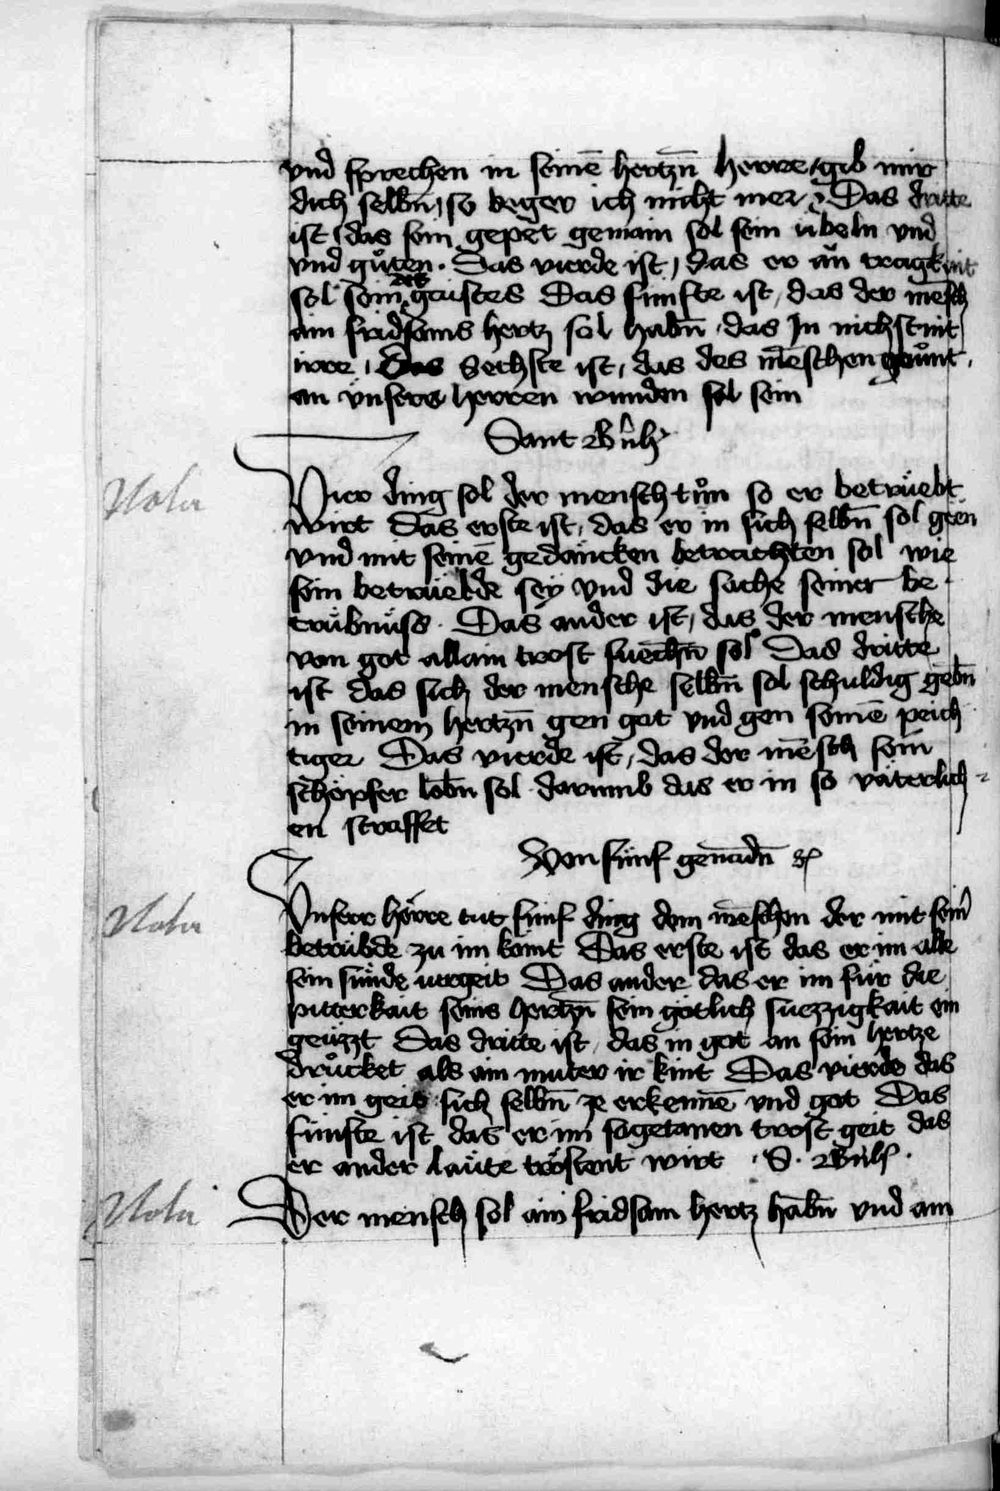 vnd sprechen in seinē hertzn̄ herre / gib mir
dich selbn̄ / so beger ich nicht mer / Das dritte
ist / das sein gepet gemain sol sein übeln vnd
vnd gůten · Das vierde ist / das er an̄ tragkait
sol sein des gaistes Das fünfte ist / das der mēsch
ain fridsams hertz sol habn̄ / das In nichst nit
irre / Das Sechste ist / das des mēschen
an vnsers herren wunden sol sein
Sant
Vier ding sol der mensch tůn so er betrüebt
wirt Das erste ist / das er in sich selbn̄ sol geen
vnd mit seinē gedäncken betrachten sol wie
sein betrüebde seÿ vnd die sache seiner be
trübnüss · Das ander ist / das der mensche
von got allain trost suechn̄ sol Das dritte
ist das sich der mensche selbn̄ sol schuldig gebn̄
in seinem hertzn̄ gen got vnd gen seinē peich
tiger Das vierde ist / das der mēsch sein
schöpfer lobn̄ sol darumb das er in so väterlich
en straffet
Von fünf genadn̄
Vnserr herre tut fünf ding dem mēschen der mit sein̄
betrübde zu im komt Das erste ist das er im alle
sein sünde vergeit Das ander das er im für die
pitterkait seins hertzn̄ sein götlich süezzigkait ein
geüzzt Das dritte ist / das in got an sein hertze
drücket als ain muter ir kint Das vierde das
er im geit sich selbn̄ ze erkennē vnd got Das
fünfte ist das er im sogetanen trost geit das
er ander laüte tröstent wirt · S.
Der mensch sol ain fridsam hertz habn̄ vnd ain
Nota
Nota
Nota